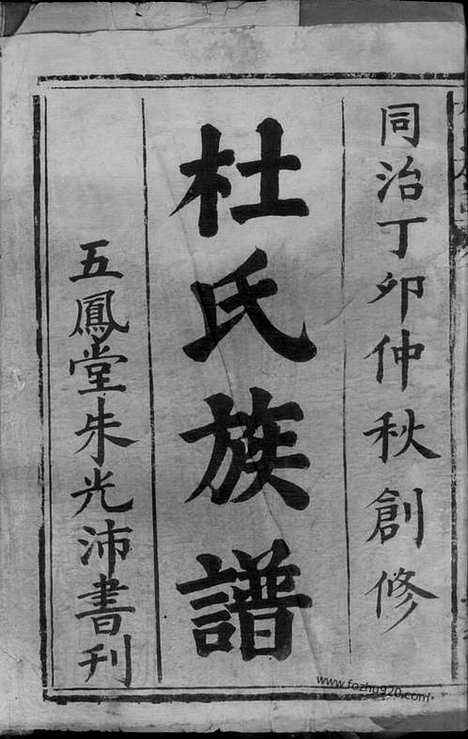 同治丁卯仲秋創修
杜氏族譜
五鳳堂朱光沛書刊
www.fozhu920.com